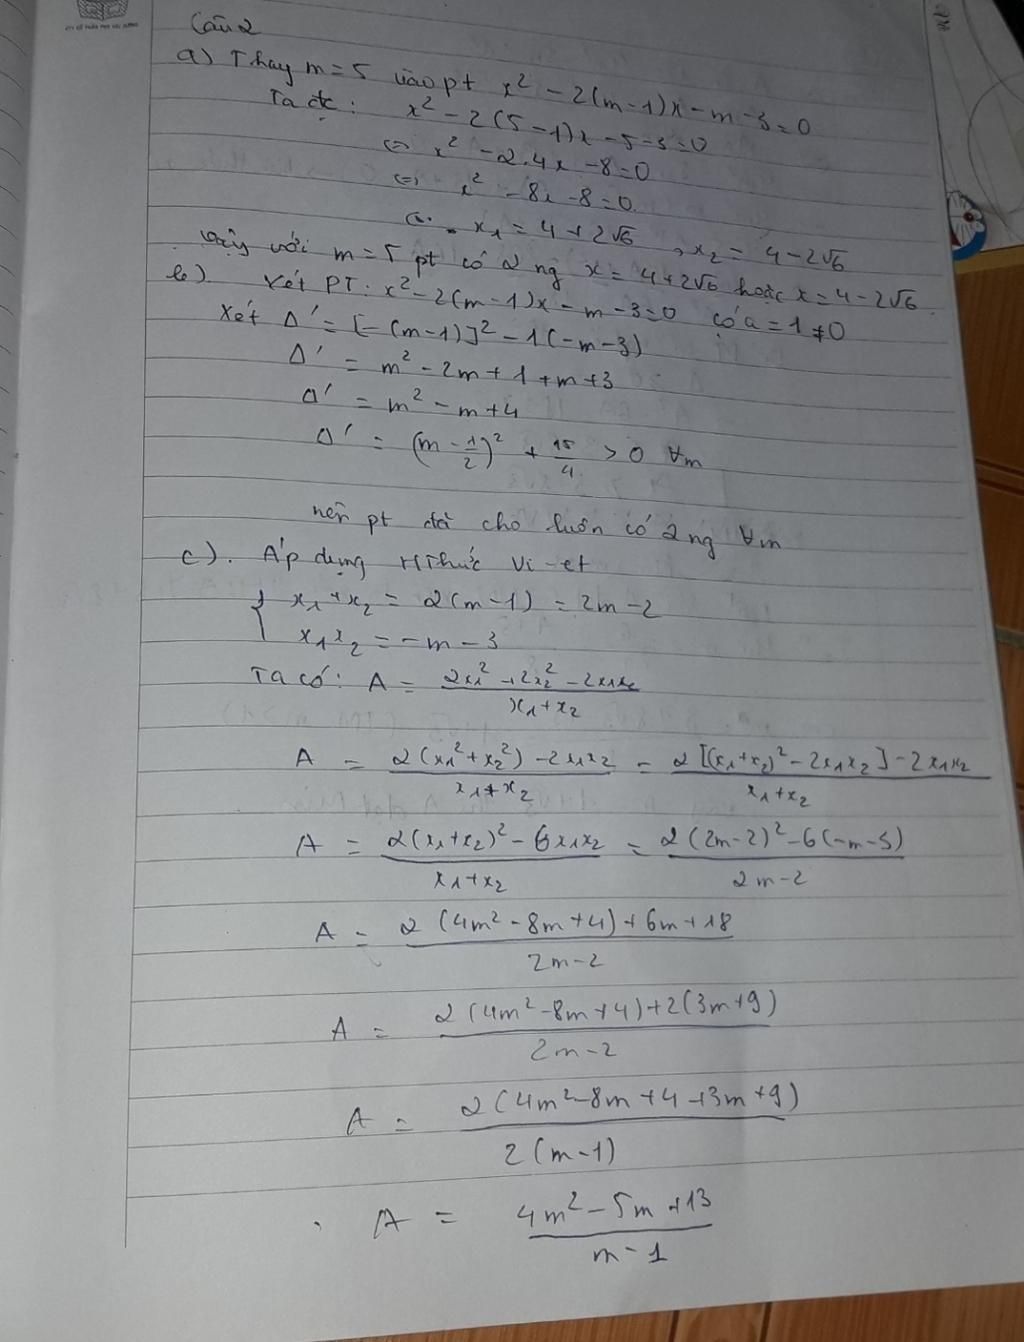 Câu 2
a) Thay m = 5 vào pt x² - 2(m-1)x - m - 3 = 0
Ta đc: x² - 2(5-1)x - 5 - 3 = 0
⇔ x² - 2.4x - 8 = 0
⇔ x² - 8x - 8 = 0.
x₁ = 4 + 2√6 , x₂ = 4 - 2√6
Vậy với m = 5 pt có 2 ng x = 4 + 2√6 hoặc x = 4 - 2√6.
b) Xét PT: x² - 2(m-1)x - m - 3 = 0 có a = 1 ≠ 0
Xét Δ' = [-(m-1)]² - 1(-m-3)
Δ' = m² - 2m + 1 + m + 3
Δ' = m² - m + 4
Δ' = (m - 1/2)² + 15/4 > 0 ∀m
nên pt đã cho luôn có 2 ng ∀m
c). Áp dụng HThức Vi-et
{ x₁ + x₂ = 2(m-1) = 2m - 2
x₁x₂ = -m - 3
Ta có: A = (2x₁² + 2x₂² - 2x₁x₂)/(x₁ + x₂)
A = (2(x₁² + x₂²) - 2x₁x₂)/(x₁ + x₂) = (2[(x₁+x₂)² - 2x₁x₂] - 2x₁x₂)/(x₁ + x₂)
A = (2(x₁+x₂)² - 6x₁x₂)/(x₁ + x₂) = (2(2m-2)² - 6(-m-3))/(2m-2)
A = (2(4m² - 8m + 4) + 6m + 18)/(2m-2)
A = (2(4m² - 8m + 4) + 2(3m+9))/(2m-2)
A = (2(4m² - 8m + 4 + 3m + 9))/(2(m-1))
A = (4m² - 5m + 13)/(m-1)